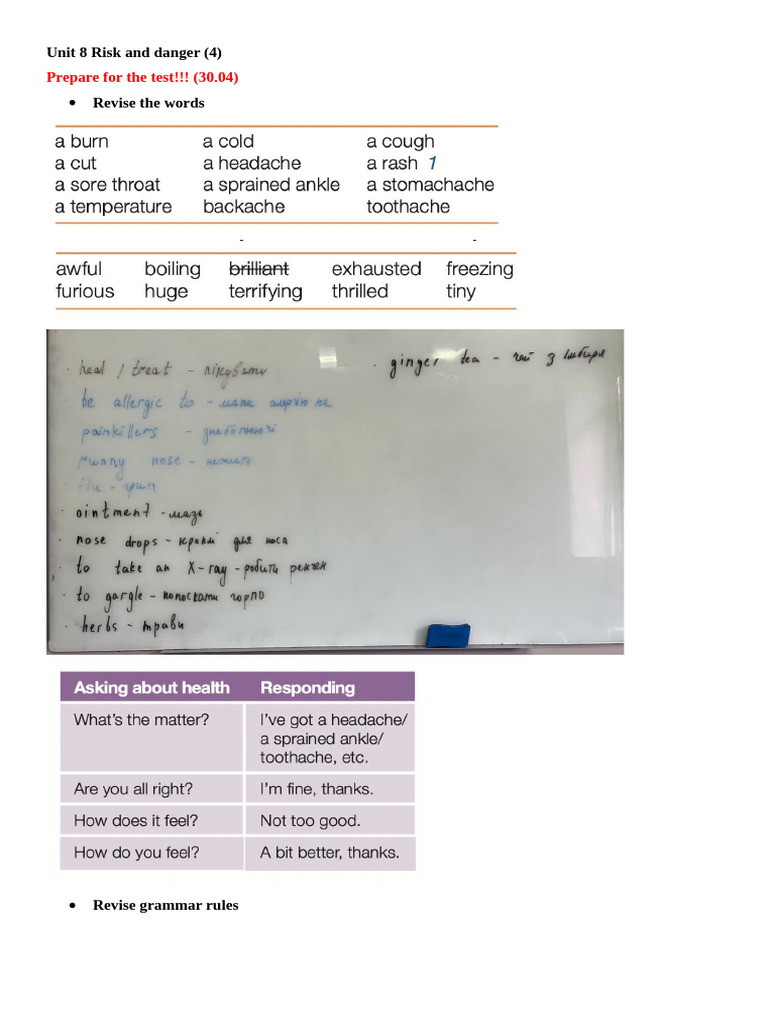 Unit 8 Risk and danger (4)
Prepare for the test!!! (30.04)
• Revise the words
a burn a cold a cough
a cut a headache a rash 1
a sore throat a sprained ankle a stomachache
a temperature backache toothache
- -
awful boiling brilliant exhausted freezing
furious huge terrifying thrilled tiny
· heal / treat - лікувати
· ginger tea - чай з імбиря
· be allergic to - мати алергію на
painkillers - знеболюючі
runny nose - нежить
· flu - грип
· ointment - мазь
· nose drops - краплі для носа
· to take an X-ray - робити рентген
· to gargle - полоскати горло
· herbs - трави
Asking about health Responding
What's the matter? I've got a headache/
a sprained ankle/
toothache, etc.
Are you all right? I'm fine, thanks.
How does it feel? Not too good.
How do you feel? A bit better, thanks.
• Revise grammar rules